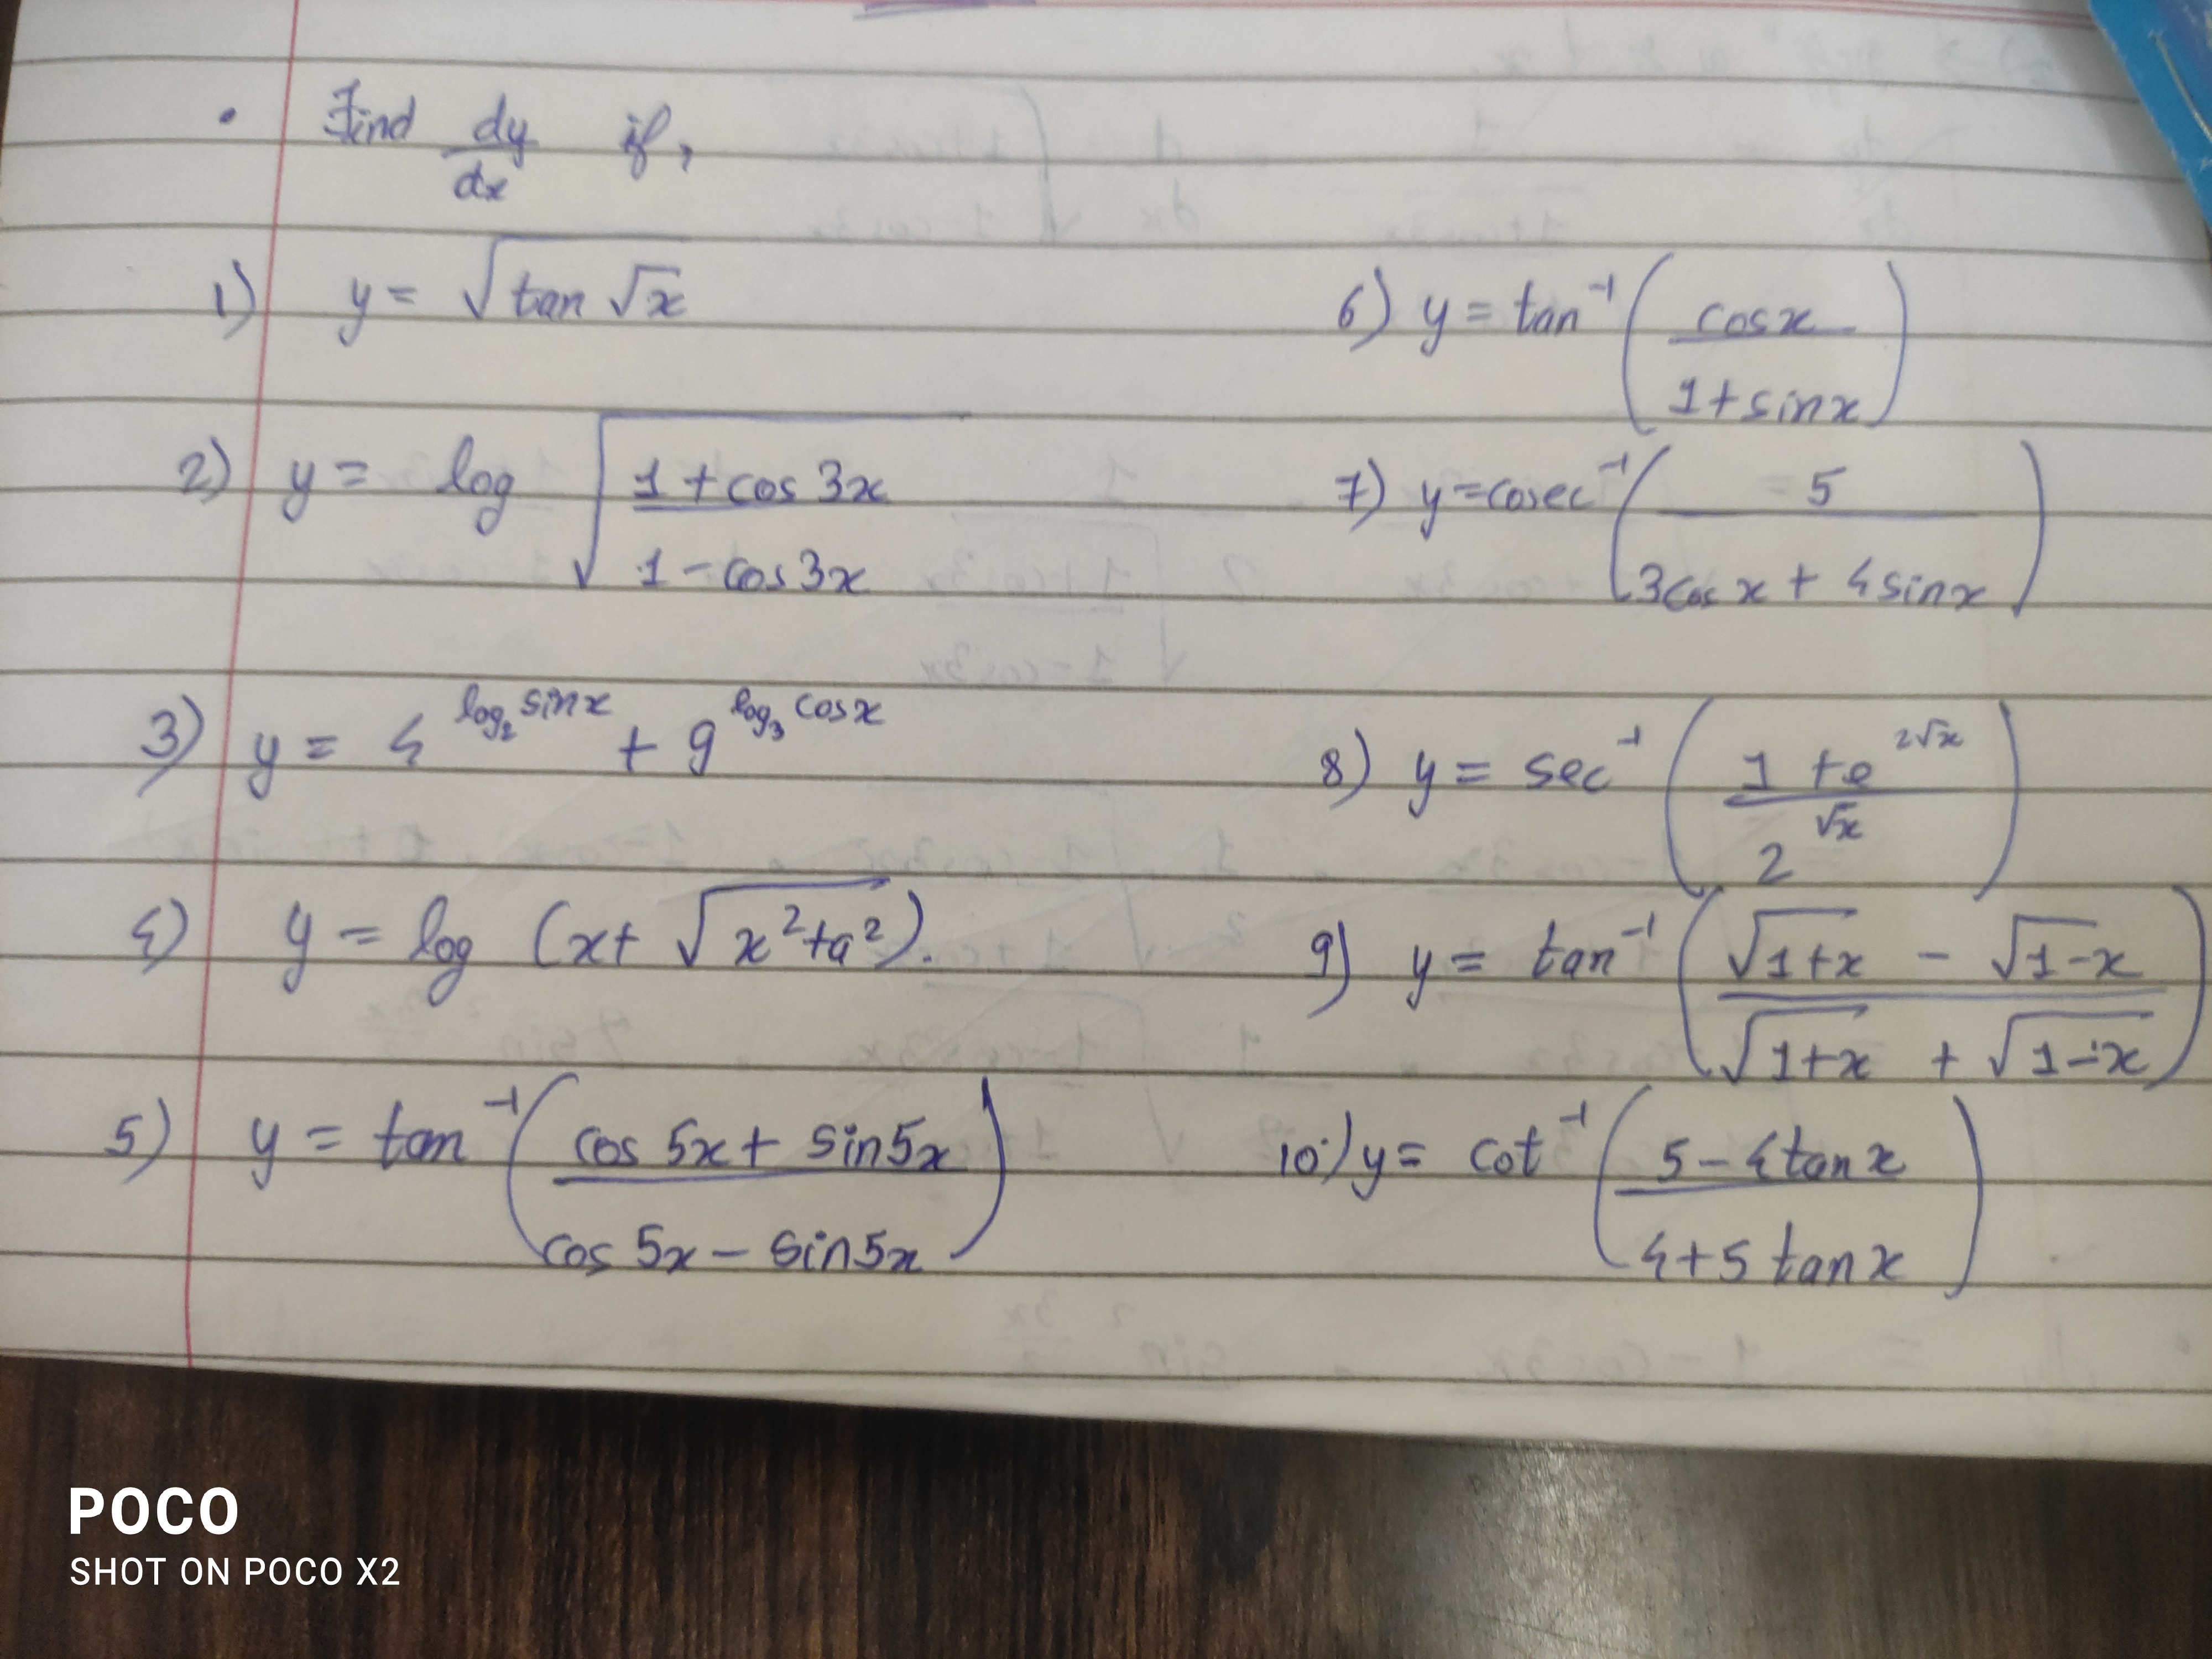 • Find dy/dx if,
1) y = √(tan √x)
2) y = log √((1 + cos 3x)/(1 - cos 3x))
3) y = 4^(log₂ sinx) + 9^(log₃ cosx)
4) y = log (x + √(x² + a²)).
5) y = tan⁻¹((cos 5x + sin5x)/(cos 5x - sin5x))
6) y = tan⁻¹(cosx/(1 + sinx))
7) y = cosec⁻¹(5/(3cos x + 4sinx))
8) y = sec⁻¹((1 + e^(2√x))/(2^(√x)))
9) y = tan⁻¹((√(1+x) - √(1-x))/(√(1+x) + √(1-x)))
10) y = cot⁻¹((5 - 4tanx)/(4 + 5 tanx))
POCO
SHOT ON POCO X2